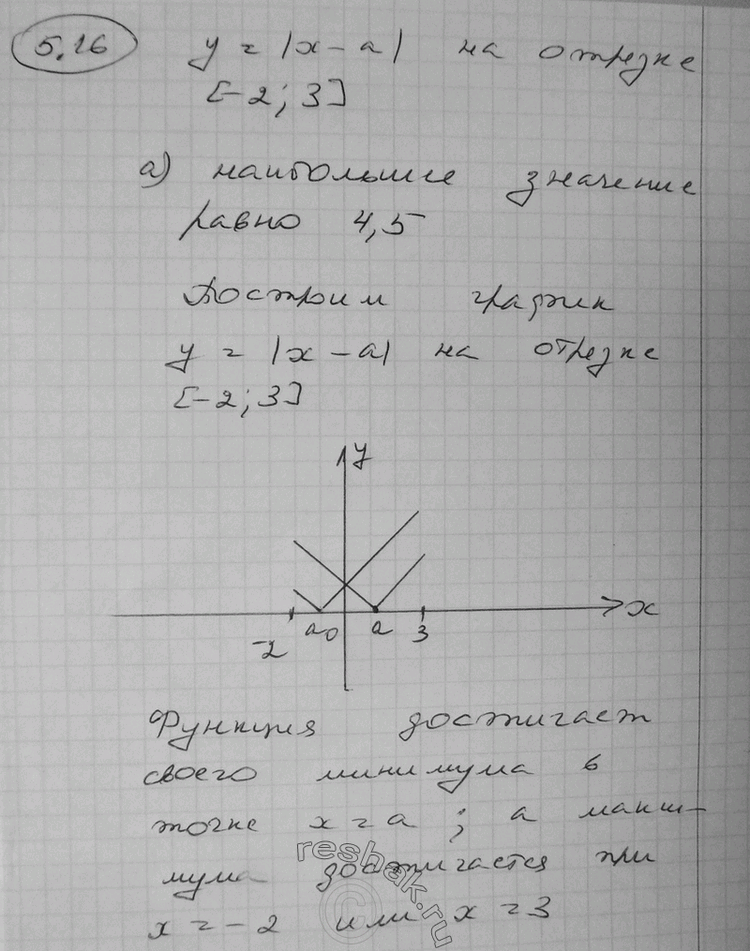 5.16 y = |x - a| на отрезке
[-2; 3]
а) наибольшее значение
равно 4,5
Построим график
y = |x - a| на отрезке
[-2; 3]
y
-2 a 0 a 3 x
Функция достигает
своего минимума в
точке x = a ; а макси-
мума достигается при
x = -2 или x = 3
reshak.ru